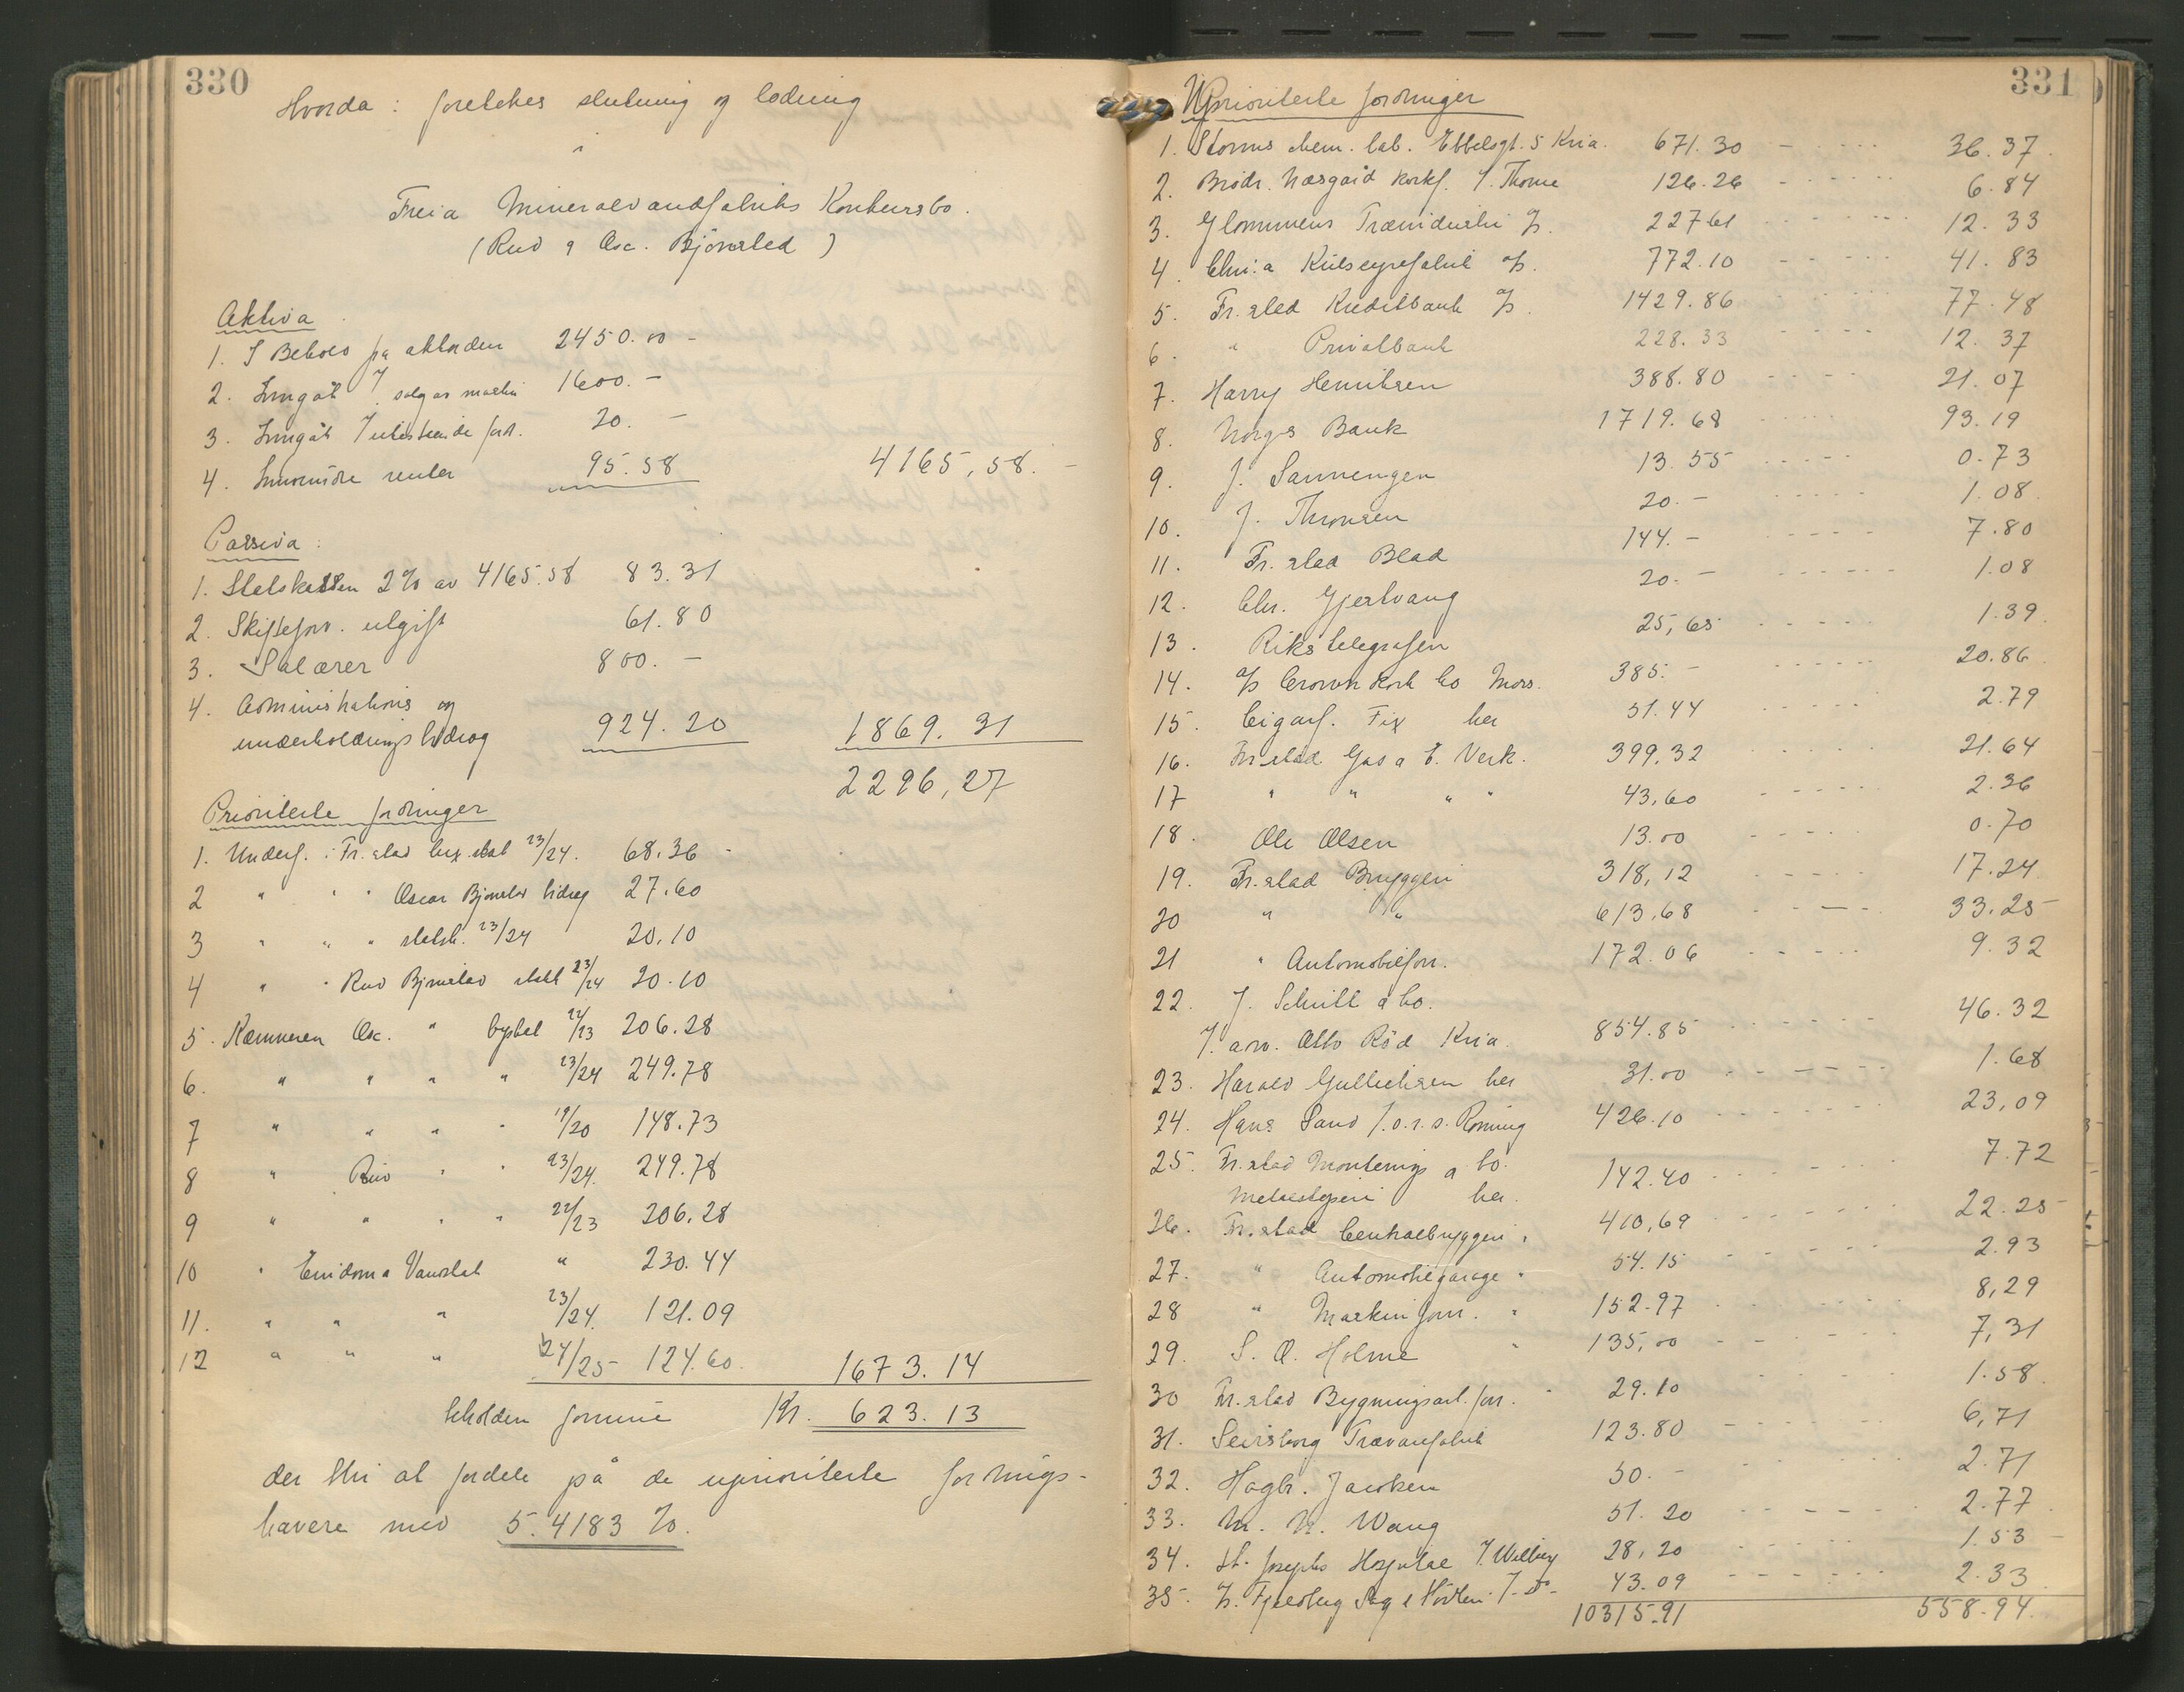 330
Hvorda: foretokes slutning og lodning
i
Freia Mineralvandfabriks Konkursbo.
(Rud og Osc. Bjørnstad)
Aktiva
1. I Behold fra akkorden 2450.00 -
2. Inngåt f. salg av maskin 1600. -
3. Inngåt f utestående ford. 20. -
4. Innvundne renter 95.58 4165,58. -
Passiva:
1. Statskassen 2% av 4165.58 83.31
2. Skifteforv. utgift 61.80
3. Salærer 800. -
4. Administrations og
underholdnings bidrag 924.20 1869.31
2296,27
Prioriterte fordringer
1. Underf. i Fr.stad byskat 23/24. 68.36 -
2 " " " Oscar Bjørnstad bidrag 27.60
3 " " " statsk. 23/24 20.10
4 " " Rud Bjørnstad statsk 23/24 20.10
5. Kæmneren Osc. " byskat 22/23 206.28
6. " " " " 23/24 249.78
7 " " " " 19/20 148.73
8 " Rud " " 23/24. 249.78
9 " " " " 22/23 206.28
10 " Eiendom a Vanskat " 230.44
11. " " " 23/24. 121.09
12 " " " 24/25 124.60. 1673.14
beholden formue Kr. 623.13
der blir at fordele på de uprioriterte fordrings-
havere med 5.4183 %.
331
Uprioriterte fordringer
1. Storms chem. lab. Ebbelsgt. 5 Kria. 671.30 - --- 36.37
2. Brødr. Næsgård korkf. f. Thorne 126.26 ------ 6.84
3. Glommens Træindustri A/S. 227 61 ------ 12.33
4. Chr:a Kulsyrefabrik A/S. 772.10 ----- 41.83
5. Fr.stad Kreditbank A/S. 1429.86 ----- 77.48
6. " Privatbank 228.33 ----- 12.37
7. Harry Henriksen 388.80 ---- 21.07
8. Norges Bank 1719.68 ----- 93.19
9. J. Sannengen 13.55 ----- 0.73
10. J. Thronsen 20. - ----- 1.08
11. Fr.stad Blad 144. - ----- 7.80
12. Chr. Gjertvang 20. - ------ 1.08
13. Rikstelegrafen 25,65 ----- 1.39
14. A/S Crown Kork Co Moss. 385. - ----- 20.86
15. Cigarf. Fix her 51.44 ----- 2.79
16. Fr.stad Gas a E. Verk. 399,32 ----- 21.64
17 " " " " 43,60 ----- 2.36
18. Ole Olsen 13.00 ----- 0.70
19. Fr.stad Bryggeri 318,12 ----- 17.24
20 " " 613,68 ----- 33.25
21 " Automobilforr. 172.06 ----- 9.32
22. J. Schult a Co.
f. adv. Otto Röd Kria. 854.85 ------ 46.32
23. Harald Gullichsen her 31.00 ------ 1.68
24. Hans Sand f.o.r.s. Rönning 426.10 ------ 23,09
25. Fr.stad Monterings a Co.
Metalstøperi her. 142.40 ------ 7.72
26. Fr.stad Centralbryggeri " 410,69 ------ 22.25
27. " Automobilgarage " 54.15 ----- 2.93
28 " Maskinforr. " 152.97 ------ 8,29
29. S. A. Holme " 135,00 ------ 7,31
30 Fr.stad Bygningsart. forr. " 29.10 1.58
31. Seirsborg Trævarefabrik 123.80 ----- 6,71
32. Hagb. Jacobsen 50. - ----- 2.71
33. M. N. Wang 51.20 ----- 2.77
34. St. Josephs Hospital f. Wilberg 28,20 ------ 1.53
35. A/S. Fjeldberg Sag & Høvleri f. do - 43.09 ------ 2.33
10315.91 558.94